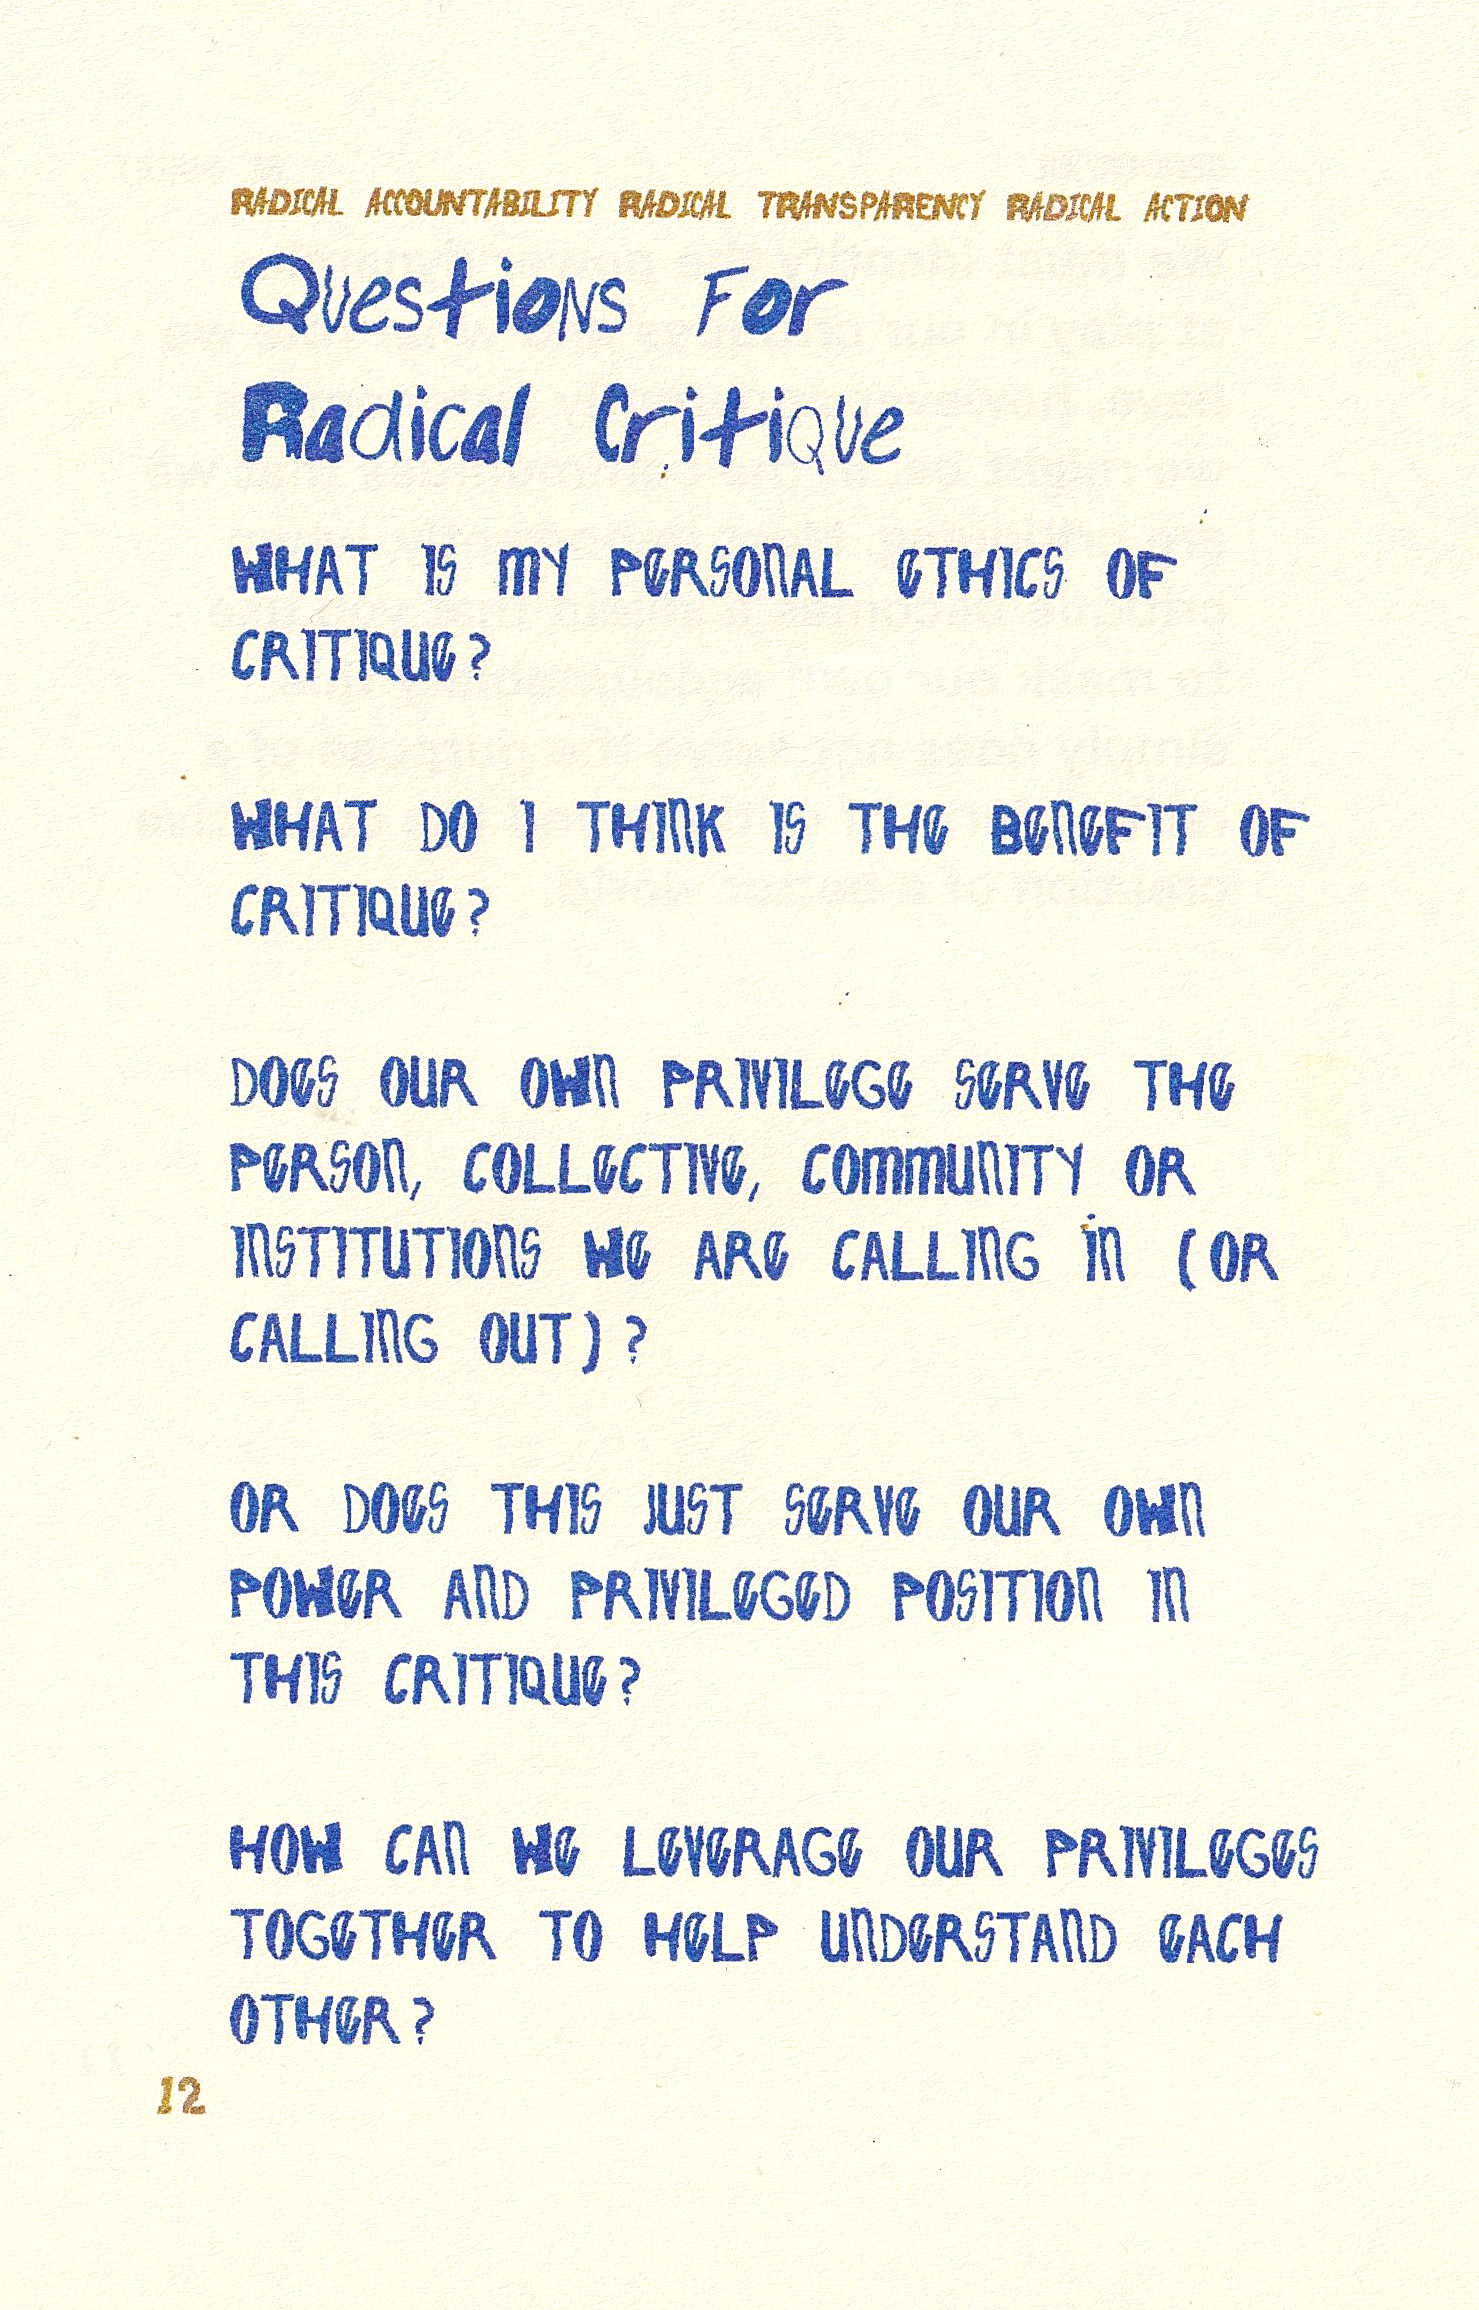 RADICAL ACCOUNTABILITY RADICAL TRANSPARENCY RADICAL ACTION
Questions For
Radical Critique
WHAT IS MY PERSONAL ETHICS OF
CRITIQUE?
WHAT DO I THINK IS THE BENEFIT OF
CRITIQUE?
DOES OUR OWN PRIVILEGE SERVE THE
PERSON, COLLECTIVE, COMMUNITY OR
INSTITUTIONS WE ARE CALLING IN (OR
CALLING OUT)?
OR DOES THIS JUST SERVE OUR OWN
POWER AND PRIVILEGED POSITION IN
THIS CRITIQUE?
HOW CAN WE LEVERAGE OUR PRIVILEGES
TOGETHER TO HELP UNDERSTAND EACH
OTHER?
12